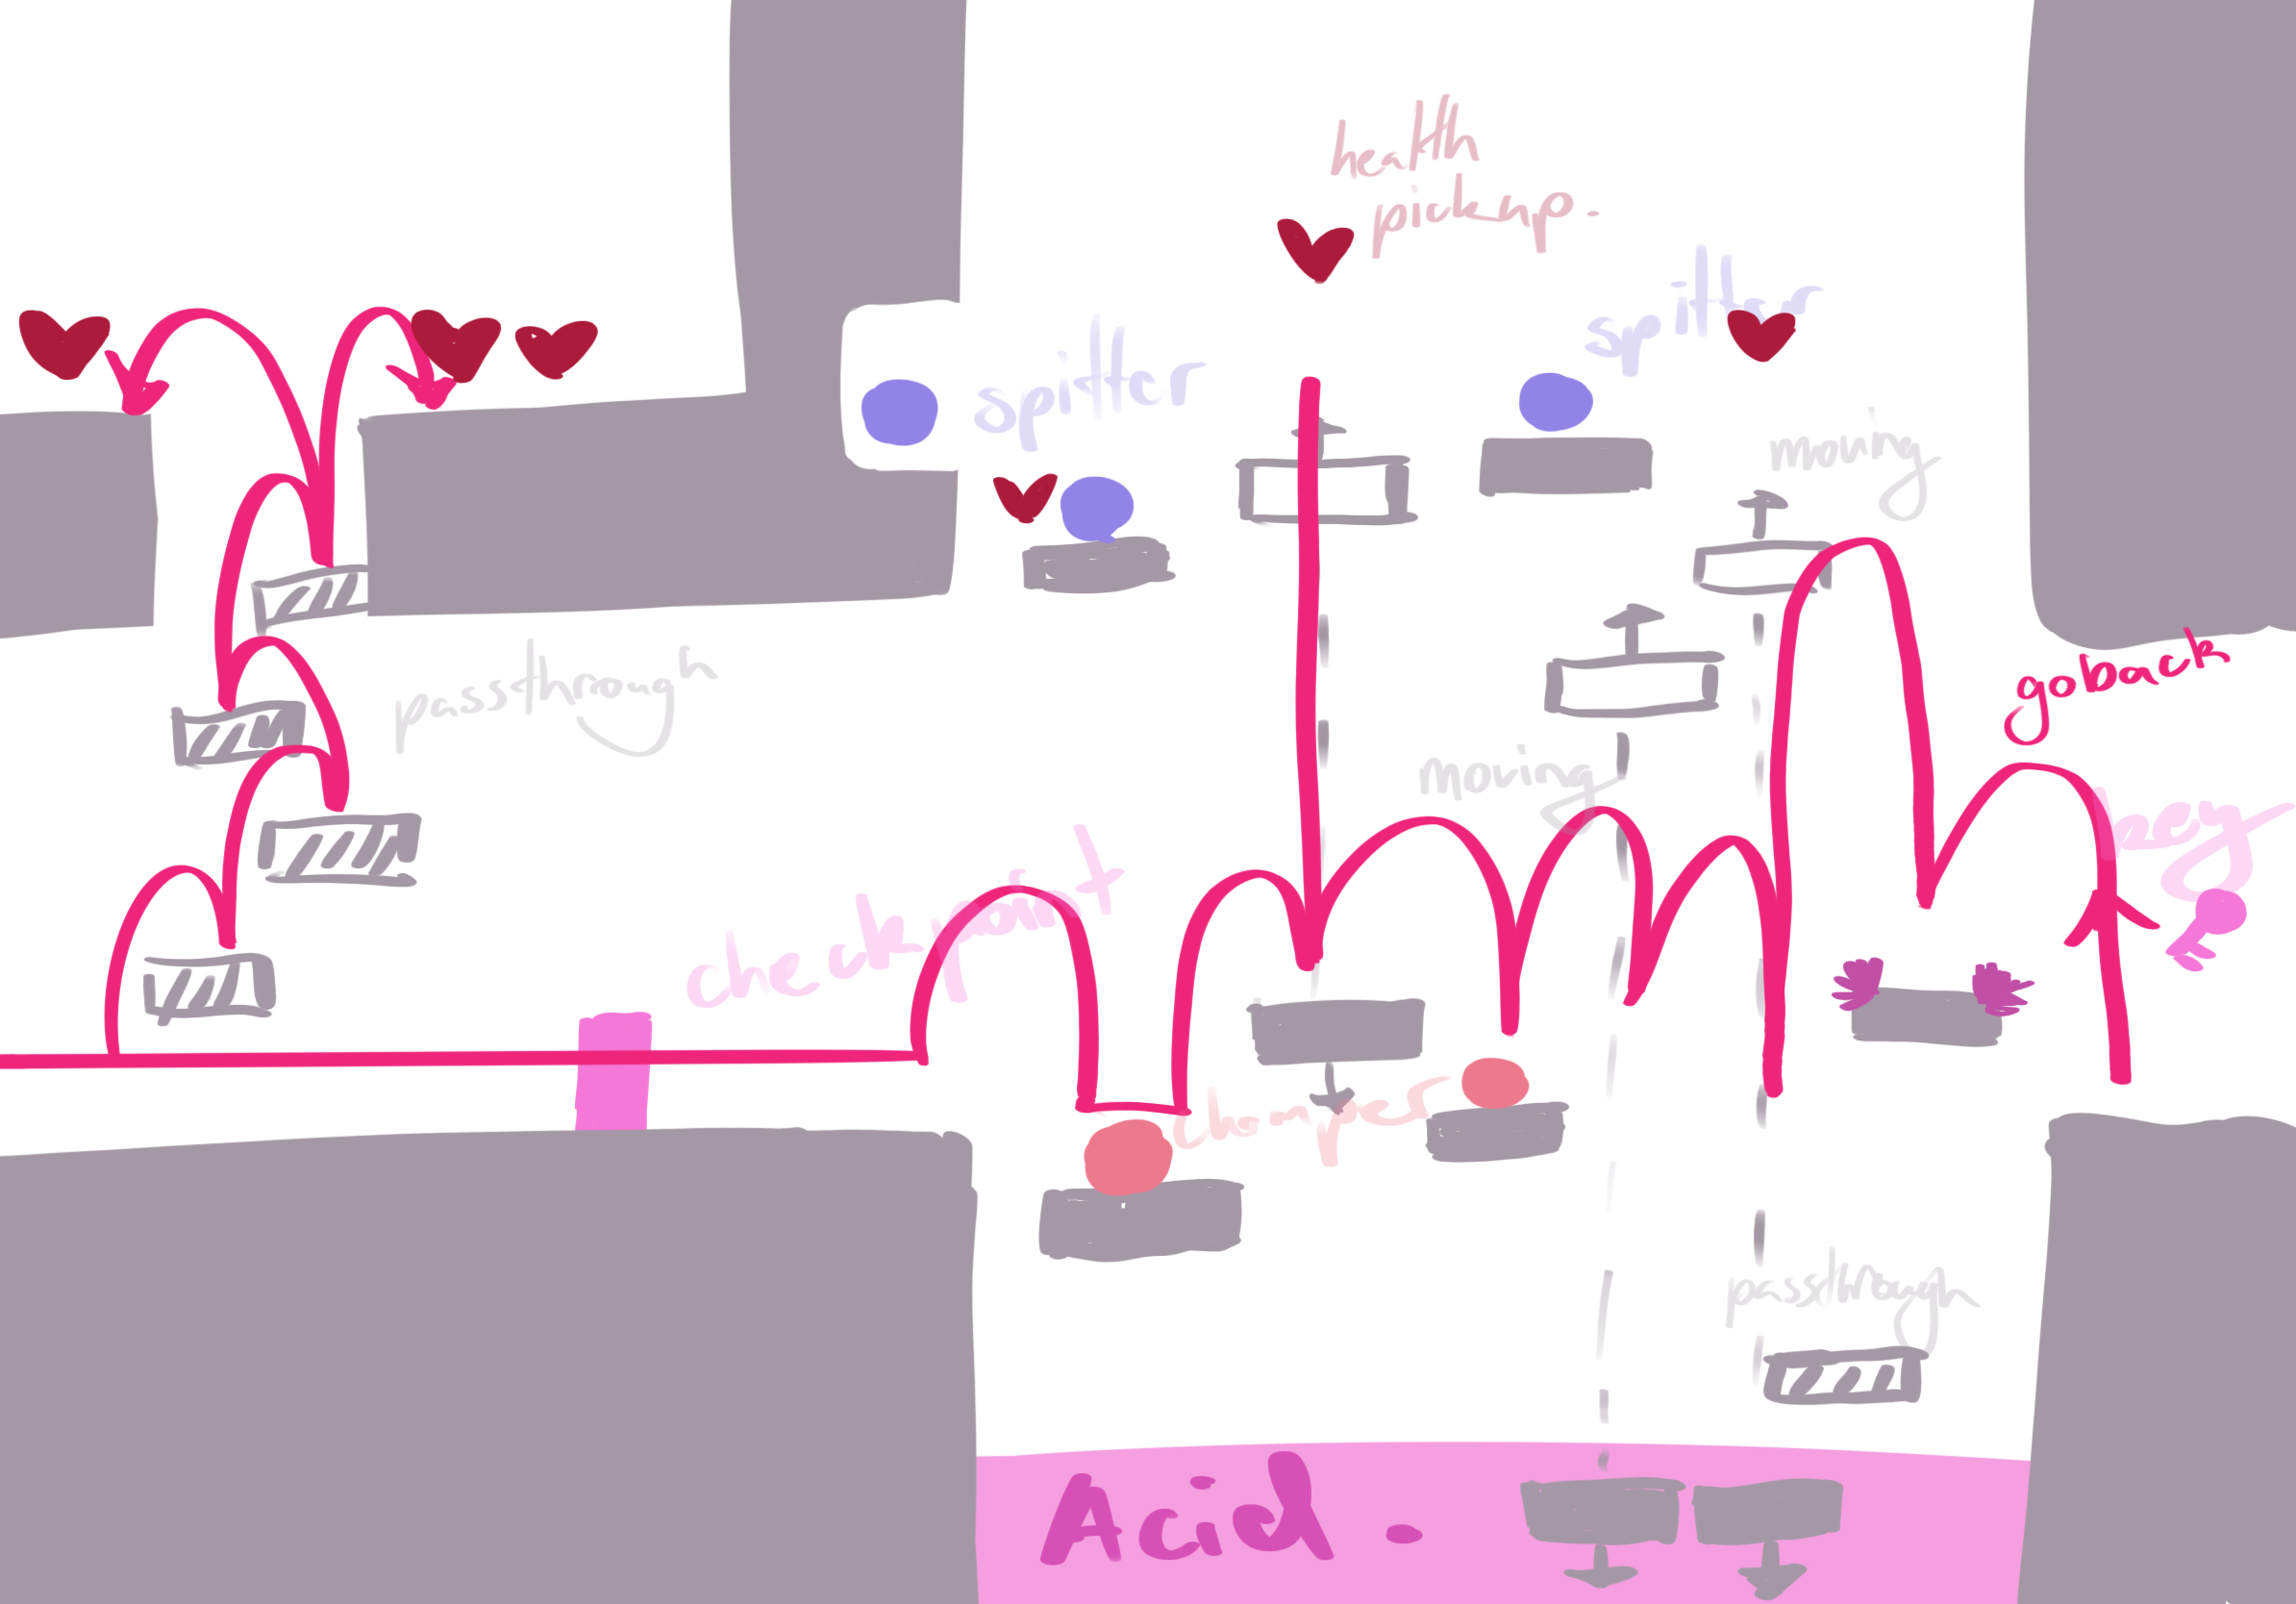 health
pickup.
spitter
spitter
moving
passthrough
go back
moving
key
checkpoint
chomper
passthrough
Acid.